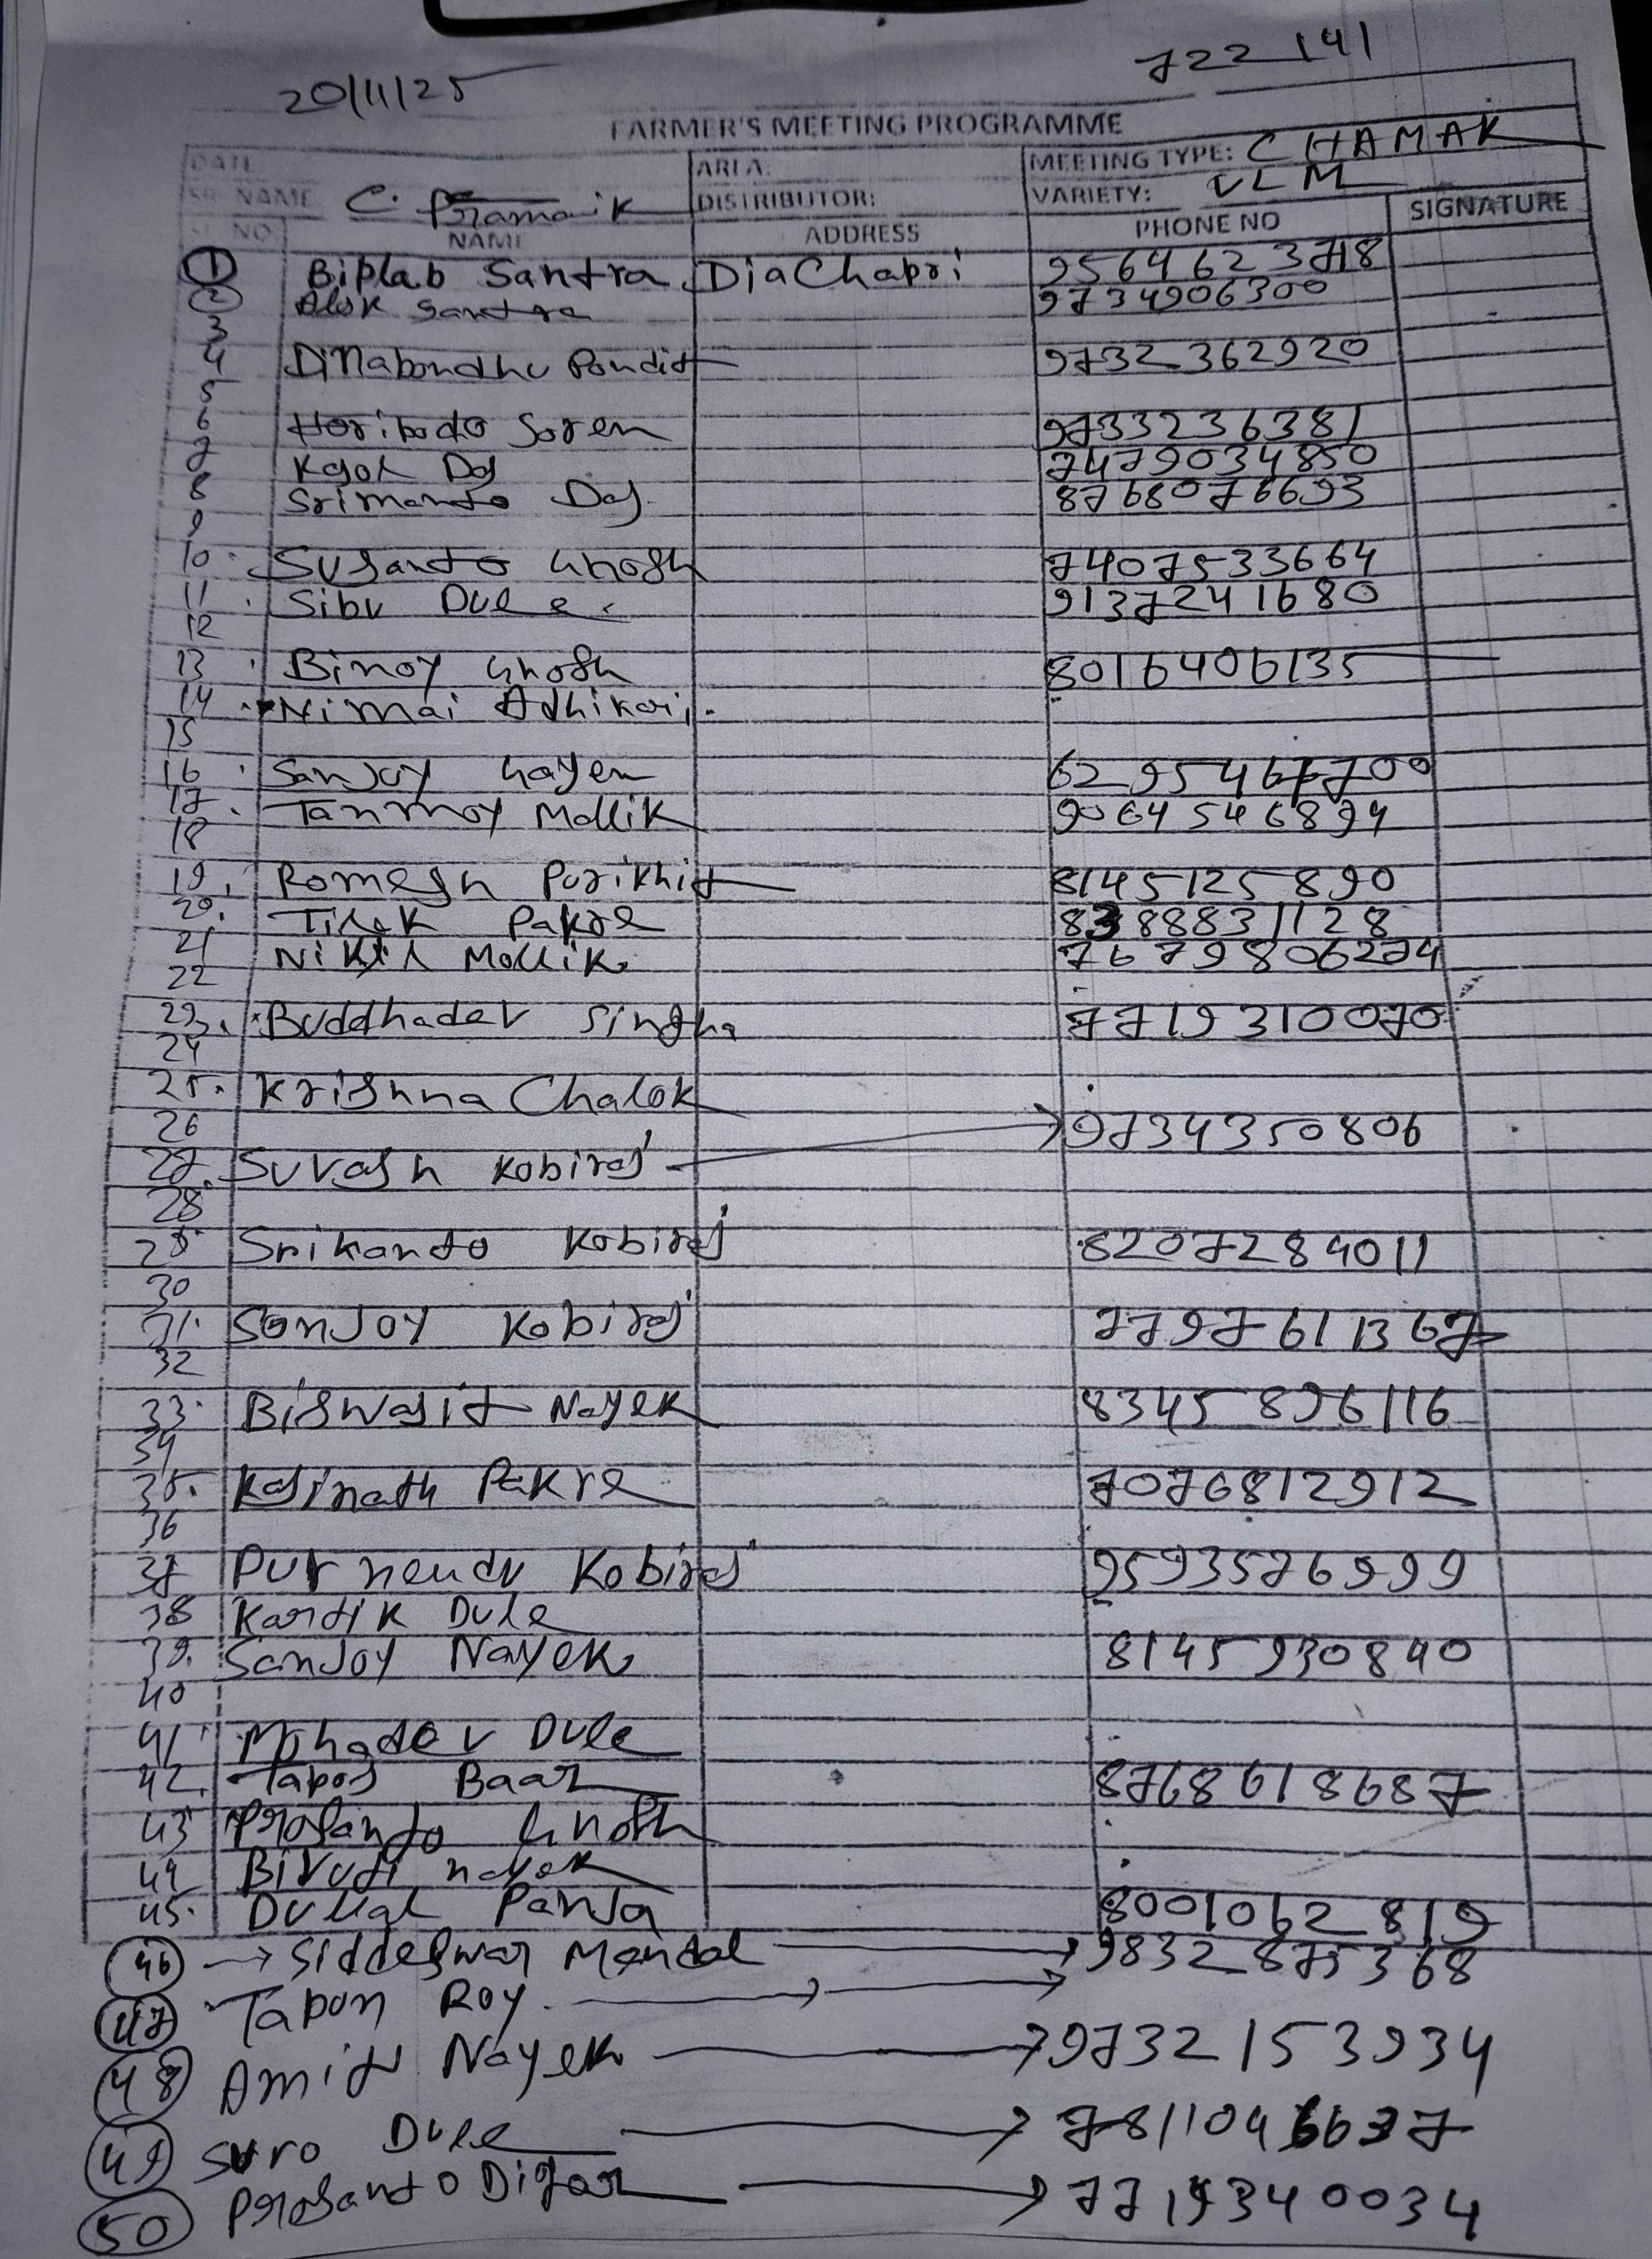 20/11/25
722141
FARMER'S MEETING PROGRAMME
DATE AREA: MEETING TYPE: CHAMAK
NAME C. Pramanik DISTRIBUTOR: VARIETY: VLM
NO. NAME ADDRESS PHONE NO SIGNATURE
1 Biplab Santra DiaChapri
2 Alok Santra 9734906300
3
4 Dinabondhu Pondit 9732362920
5
6 Horibodo Soren 9733236381
7 Kajol Das 7479034850
8 Srimanto Das 8768076693
9
10. Susanto Ghosh 7407533664
11. Sibu Dule. 9137241680
12
13. Binoy Ghosh 8016406135
14. Nimai Adhikari.
15
16. Sanjoy Gayen
17. Tanmoy Mollik 9064546894
18
19. Romesh Parikhit 8145125890
20. Tilak Pakre 8388831128
21 Nikhil Mollik
22
23. Buddhadev Singha 7719310070
24
25. Krishna Chalok
26 9734350806
27. Suvash Kobiraj →
28
29 Srikanto Kobiraj 8207284011
30
31. Sonjoy Kobiraj 7797611367
32
33. Biswajit Nayek 8345896116
34
35. Kajinath Pakre 7076812912
36
37 Purnendu Kobiraj 9593576999
38 Kartik Dule
39. Sanjoy Nayek 8145930840
40
41 Mohadev Dule
42. Tapas Baar 8768618687
43 Prosanto Ghosh
44 nayek
45. Dulal Panja 8001062819
46 → Siddeswar Mandal → 9832875368
47 Tapon Roy. → →
48 Amit Nayek → 9732153934
49 Suro Dule →
50 Prosanto Digar → 7719340034